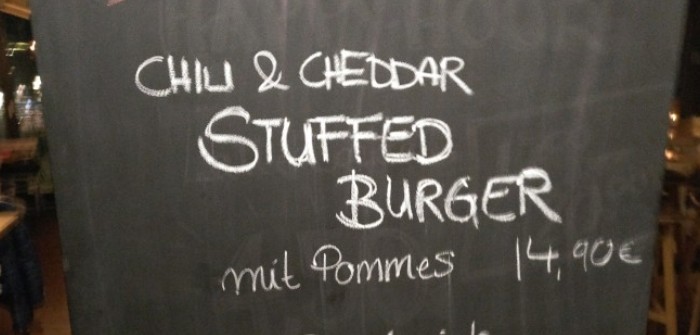 CHILI & CHEDDAR
STUFFED
BURGER
mit Pommes 14,90€